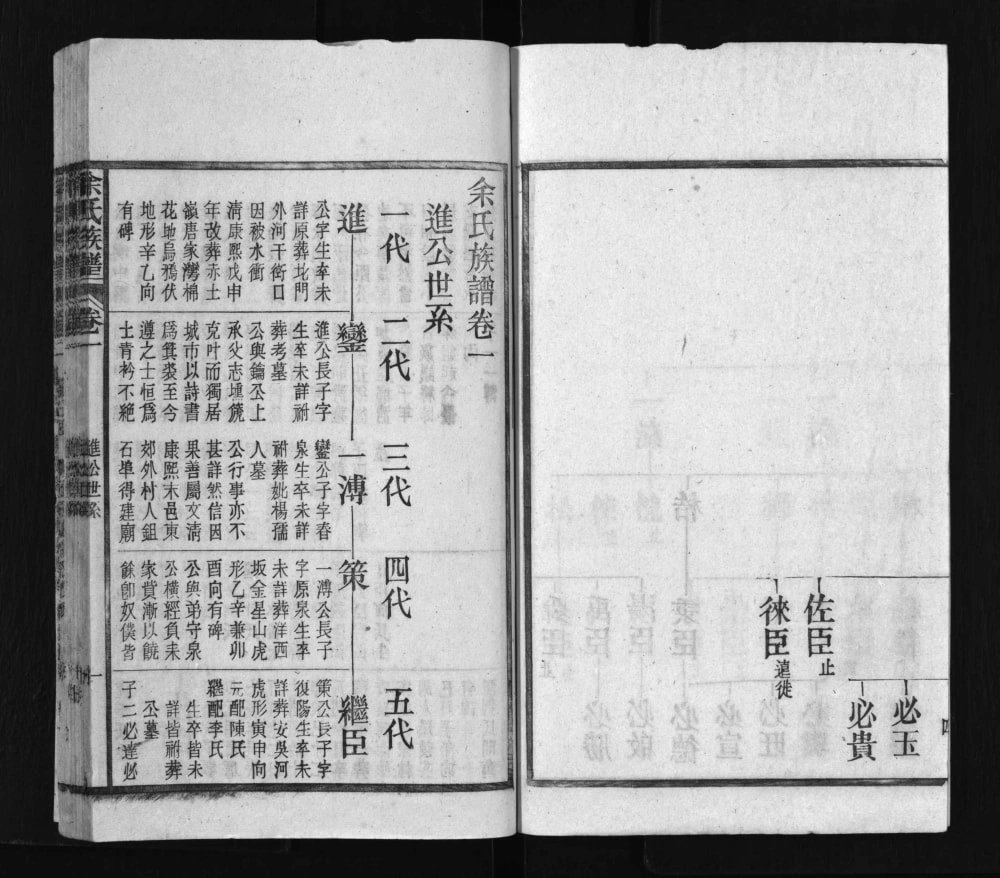 佐臣止
徠臣遠徙
必玉
必貴
四
余氏族譜卷一
進公世系
一代
二代
三代
四代
五代
進
公字生卒未
詳原葬北門
外河干衙口
因被水衝
清康熙戊申
年改葬赤土
嶺唐家灣棉
花地烏鴉伏
地形辛乙向
有碑
鑾
進公長子字
生卒未詳祔
葬考墓
公與鑰公上
承父志壎篪
克叶而獨居
城市以詩書
爲箕裘至今
遵之士恒爲
士青衿不絕
一溥
鑾公子字春
泉生卒未詳
祔葬妣楊孺
人墓
公行事亦不
甚詳然信因
果善屬文清
康熙末邑東
郊外村人鉏
石阜得建廟
策
一溥公長子
字原泉生卒
未詳葬洋西
坂金星山虎
形乙辛兼卯
酉向有碑
公與弟守泉
公橫經負耒
家貲漸以饒
餘卽奴僕皆
繼臣
策公長子字
復陽生卒未
詳葬安吳河
虎形寅申向
元配陳氏
繼配李氏
生卒皆未
詳皆祔葬
公墓
子二必達必
余氏族譜
卷一
進公世系
一